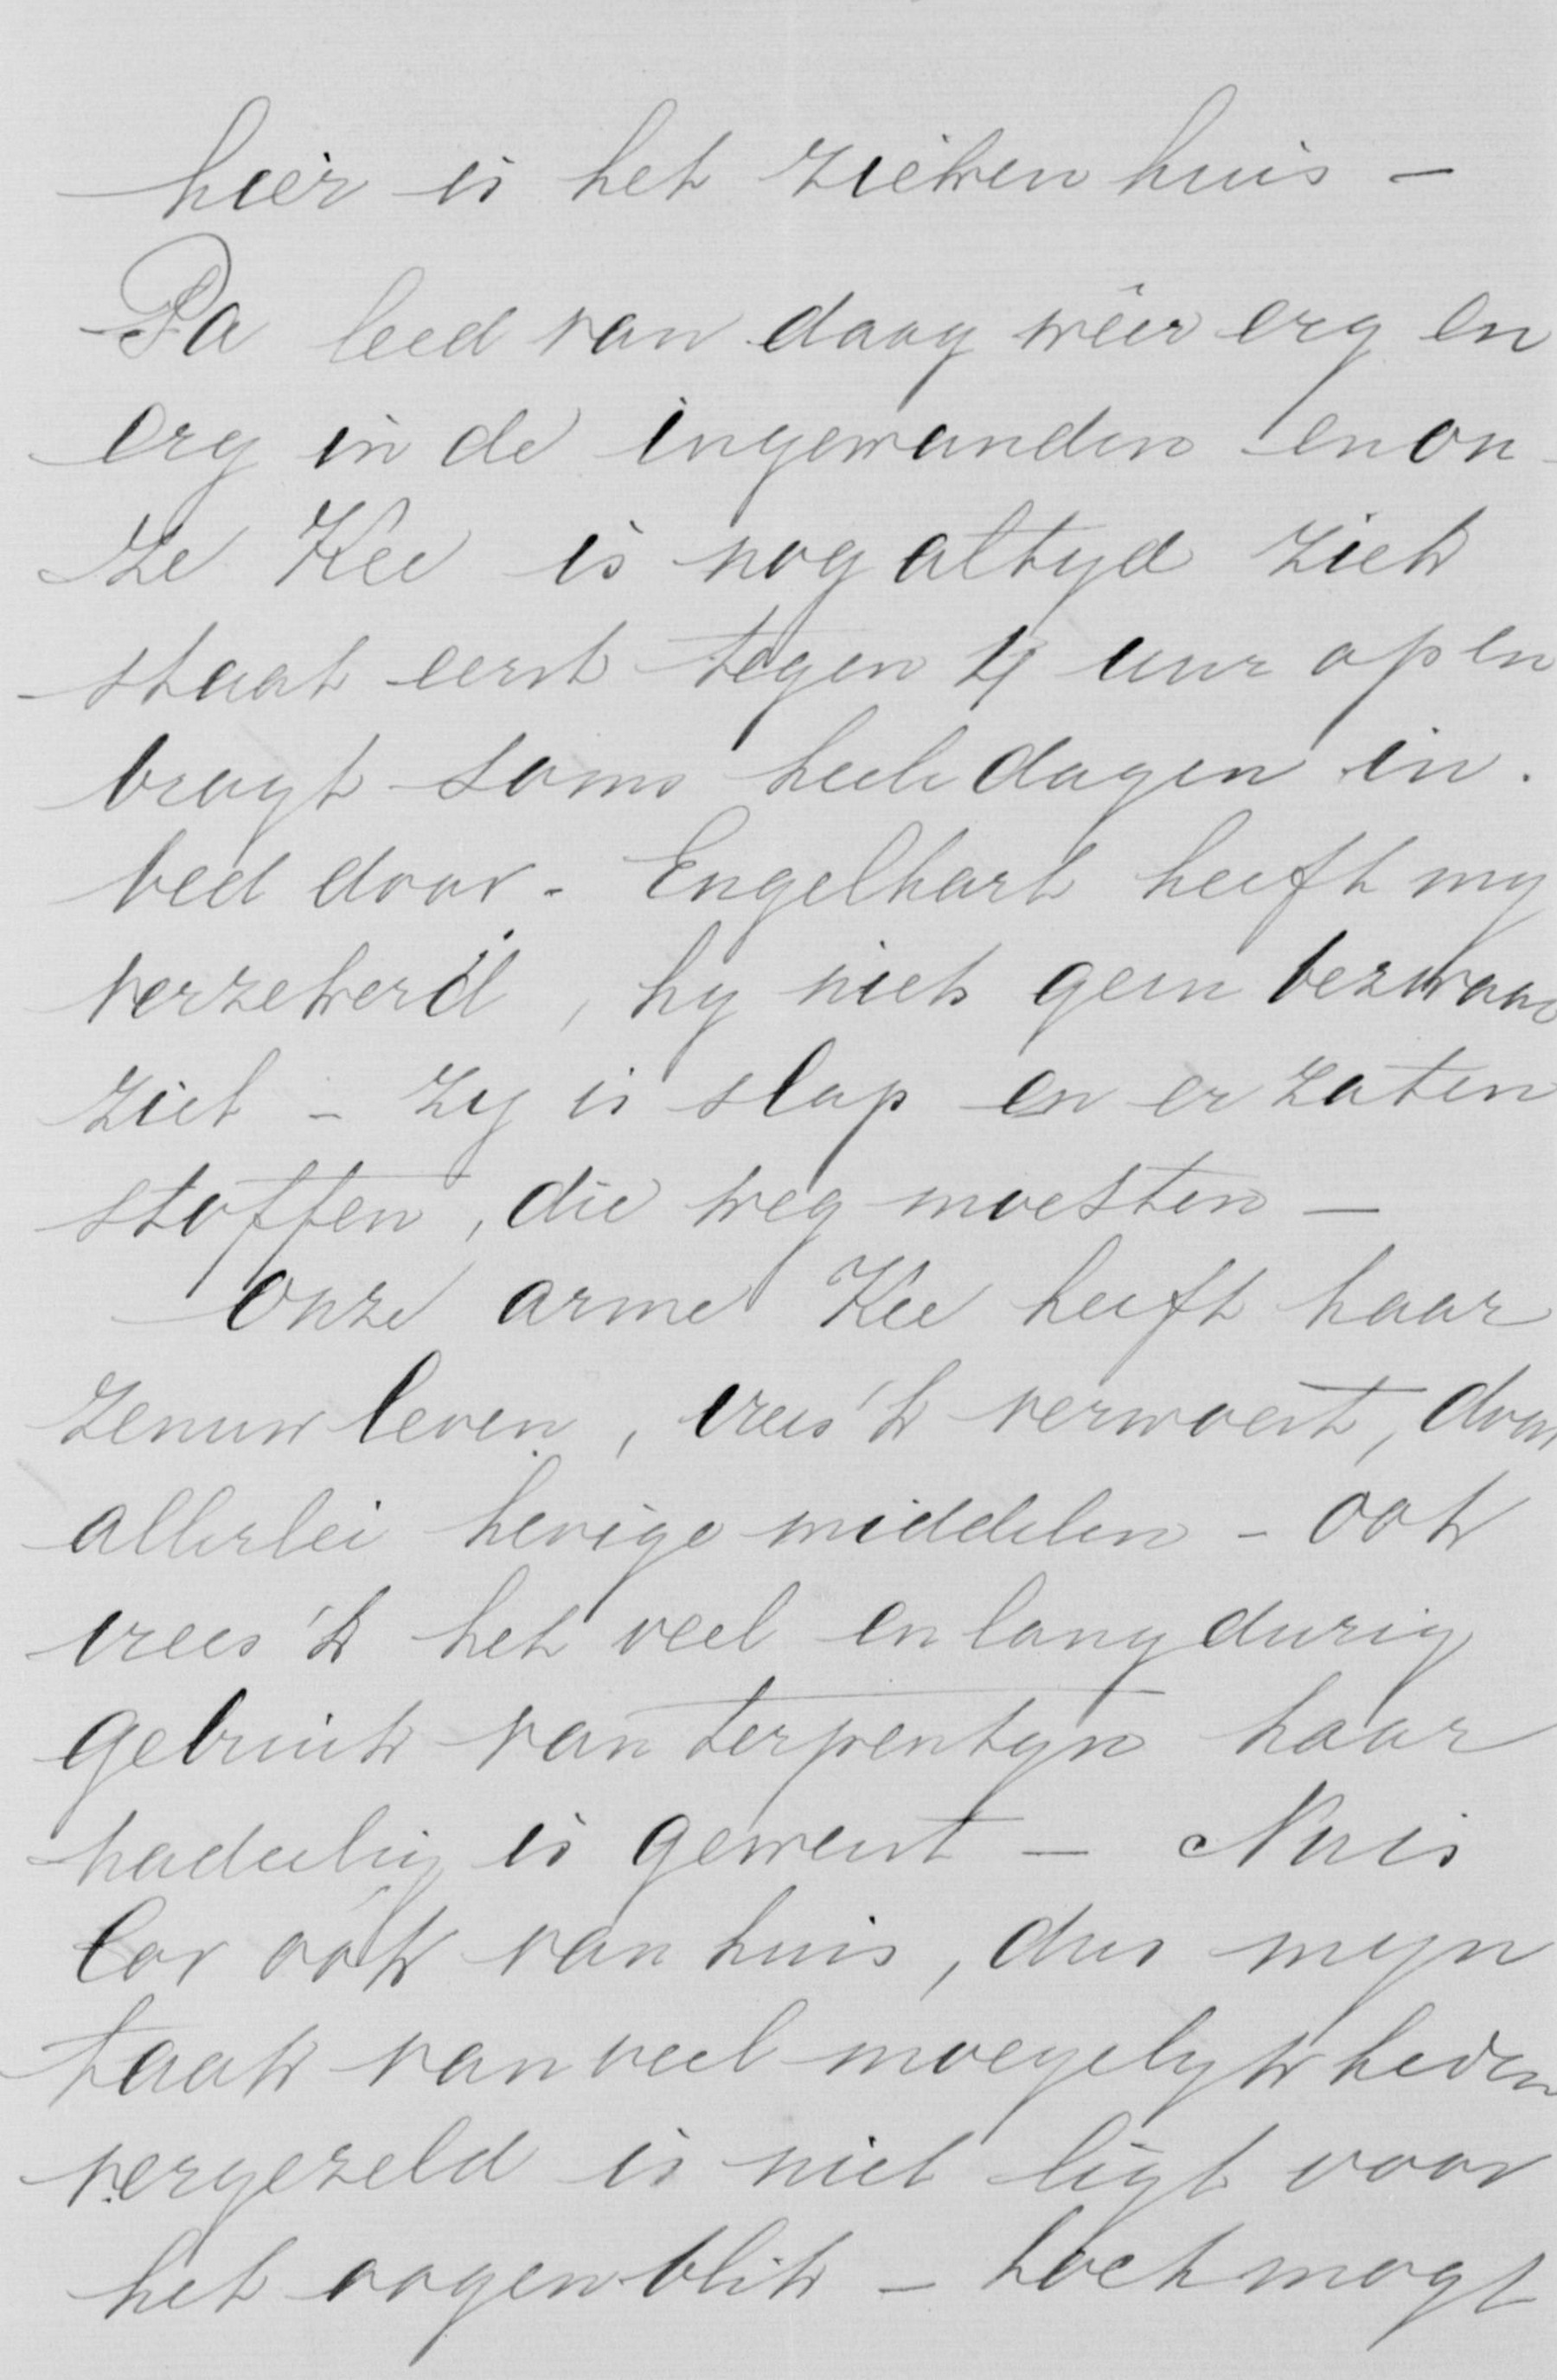 hier is het ziekenhuis –
Pa leed van daag wêer erg en
erg in de ingewanden en on-
ze Kee is nog altyd ziek
staat eerst tegen 4 uur op en
bragt soms heele dagen in
bed door. Engelhart heeft my
verzekerd, hy niets geen bezwaar
ziet – zy is slap en er zaten
stoffen, die weg moesten –
Onze arme Kee heeft haar
zenuwleven, vrees 'k verwoest, door
allerlei hevige middelen – ook
vrees 'k het veel en langdurig
gebruik van terpentyn haar
nadeelig is geweest – Nu is
Cor ook van huis, dus myn
taak van veel moeyelykheden
vergezeld is niet ligt voor
het oogenblik – hoe 't mogt